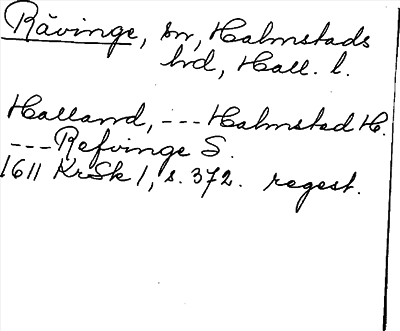 Råvinge, sn, Halmstads
hrd, Hall. l.
Halland, --- Halmstad H.
--- Refvinge S.
1611 KrSk 1, s. 372. regest.